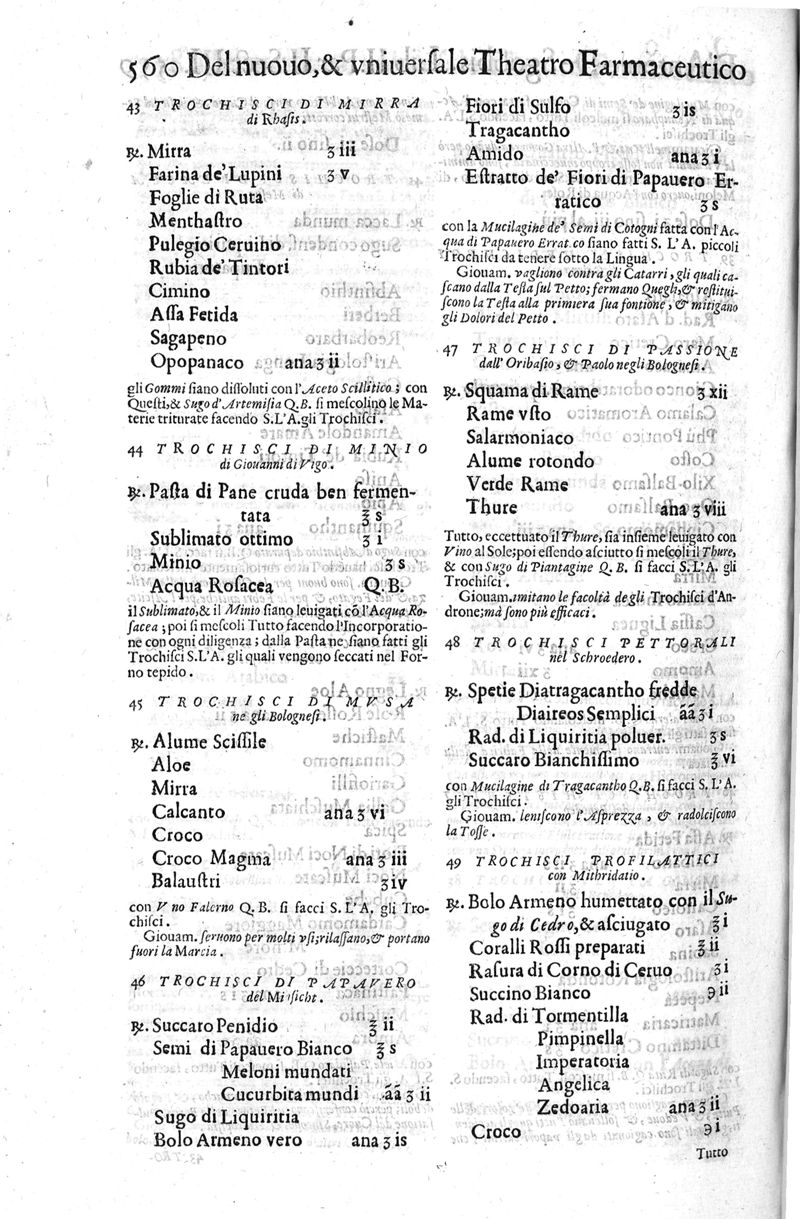 560 Del nuouo, & vniuerſale Theatro Farmaceutico
43 TROCHISCI DI MIRRA
di Rhaſis.
℞. Mirra ʒ iii
Farina de' Lupini ʒ v
Foglie di Ruta
Menthaſtro
Pulegio Ceruino
Rubia de' Tintori
Cimino
Aſſa Fetida
Sagapeno
Opopanaco ana ʒ ii
gli Gommi ſiano diſſoluti con l'Aceto Scillitico; con
Queſti, & Sugo d'Artemiſia Q.B. ſi meſcolino le Ma-
terie triturate facendo S.L'A. gli Trochiſci.
44 TROCHISCI DI MINIO
di Giouanni di Vigo.
℞. Paſta di Pane cruda ben fermen-
tata ℥ s
Sublimato ottimo ℥ i
Minio ʒ s
Acqua Roſacea Q.B.
il Sublimato, & il Minio ſiano leuigati cõ l'Acqua Ro-
ſacea; poi ſi meſcoli Tutto facendo l'Incorporatio-
ne con ogni diligenza; dalla Paſta ne ſiano fatti gli
Trochiſci S.L'A. gli quali vengono ſeccati nel For-
no tepido.
45 TROCHISCI DI MVSA
ne gli Bologneſi.
℞. Alume Sciſſile
Aloe
Mirra
Calcanto ana ʒ vi
Croco
Croco Magma ana ʒ iii
Balauſtri ʒ iv
con Vino Falerno Q.B. ſi facci S.L'A. gli Tro-
chiſci.
Giouam. ſeruono per molti vſi; rilaſſano, & portano
fuori la Marcia.
46 TROCHISCI DI PAPAVERO
del Minſicht.
℞. Succaro Penidio ℥ ii
Semi di Papauero Bianco ℥ s
Meloni mundati
Cucurbita mundi ãã ʒ ii
Sugo di Liquiritia
Bolo Armeno vero ana ʒ is
Fiori di Sulfo ʒ is
Tragacantho
Amido ana ʒ i
Eſtratto de' Fiori di Papauero Er-
ratico ʒ s
con la Mucilagine de' Semi di Cotogni fatta con l'Ac
qua di Papauero Errat.co ſiano fatti S.L'A. piccoli
Trochiſci da tenere ſotto la Lingua.
Giouam. vagliono contra gli Catarri, gli quali ca-
ſcano dalla Teſta ſul Petto; fermano Quegli, & reſtitui-
ſcono la Teſta alla primiera ſua fontione, & mitigano
gli Dolori del Petto.
47 TROCHISCI DI PASSIONE
dall' Oribaſio, & Paolo negli Bologneſi.
℞. Squama di Rame ʒ xii
Rame vſto
Salarmoniaco
Alume rotondo
Verde Rame
Thure ana ʒ viii
Tutto, eccettuato il Thure, ſia inſieme leuigato con
Vino al Sole; poi eſſendo aſciutto ſi meſcoli il Thure,
& con Sugo di Piantagine Q.B. ſi facci S.L'A. gli
Trochiſci.
Giouam. imitano le facoltà de gli Trochiſci d'An-
drone; mà ſono più efficaci.
48 TROCHISCI PETTORALI
nel Schroedero.
℞. Spetie Diatragacantho fredde
Diaireos Semplici ãã ʒ i
Rad. di Liquiritia poluer. ʒ s
Succaro Bianchiſſimo ℥ vi
con Mucilagine di Tragacantho Q.B. ſi facci S.L'A.
gli Trochiſci.
Giouam. leniſcono l'Aſprezza, & radolciſcono
la Toſſe.
49 TROCHISCI PROFILATTICI
con Mithridatio.
℞. Bolo Armeno humettato con il Su-
go di Cedro, & aſciugato ℥ i
Coralli Roſſi preparati ℥ ii
Raſura di Corno di Ceruo ʒ i
Succino Bianco ℈ ii
Rad. di Tormentilla
Pimpinella
Imperatoria
Angelica
Zedoaria ana ʒ ii
Croco ℈ i
Tutto